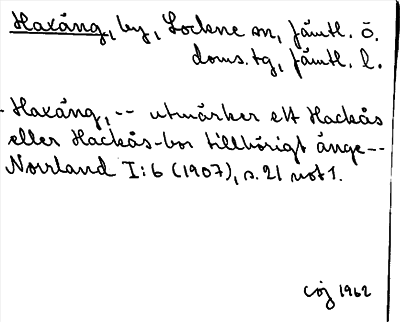 Haxäng, by, Lockne sn, Jämtl. ö.
doms.tg, Jämtl. l.
Haxäng, -- utmärker ett Hackås
eller Hackås-bor tillhörigt änge--
Norrland I:6 (1907), s. 21 not 1.
CÖJ 1962